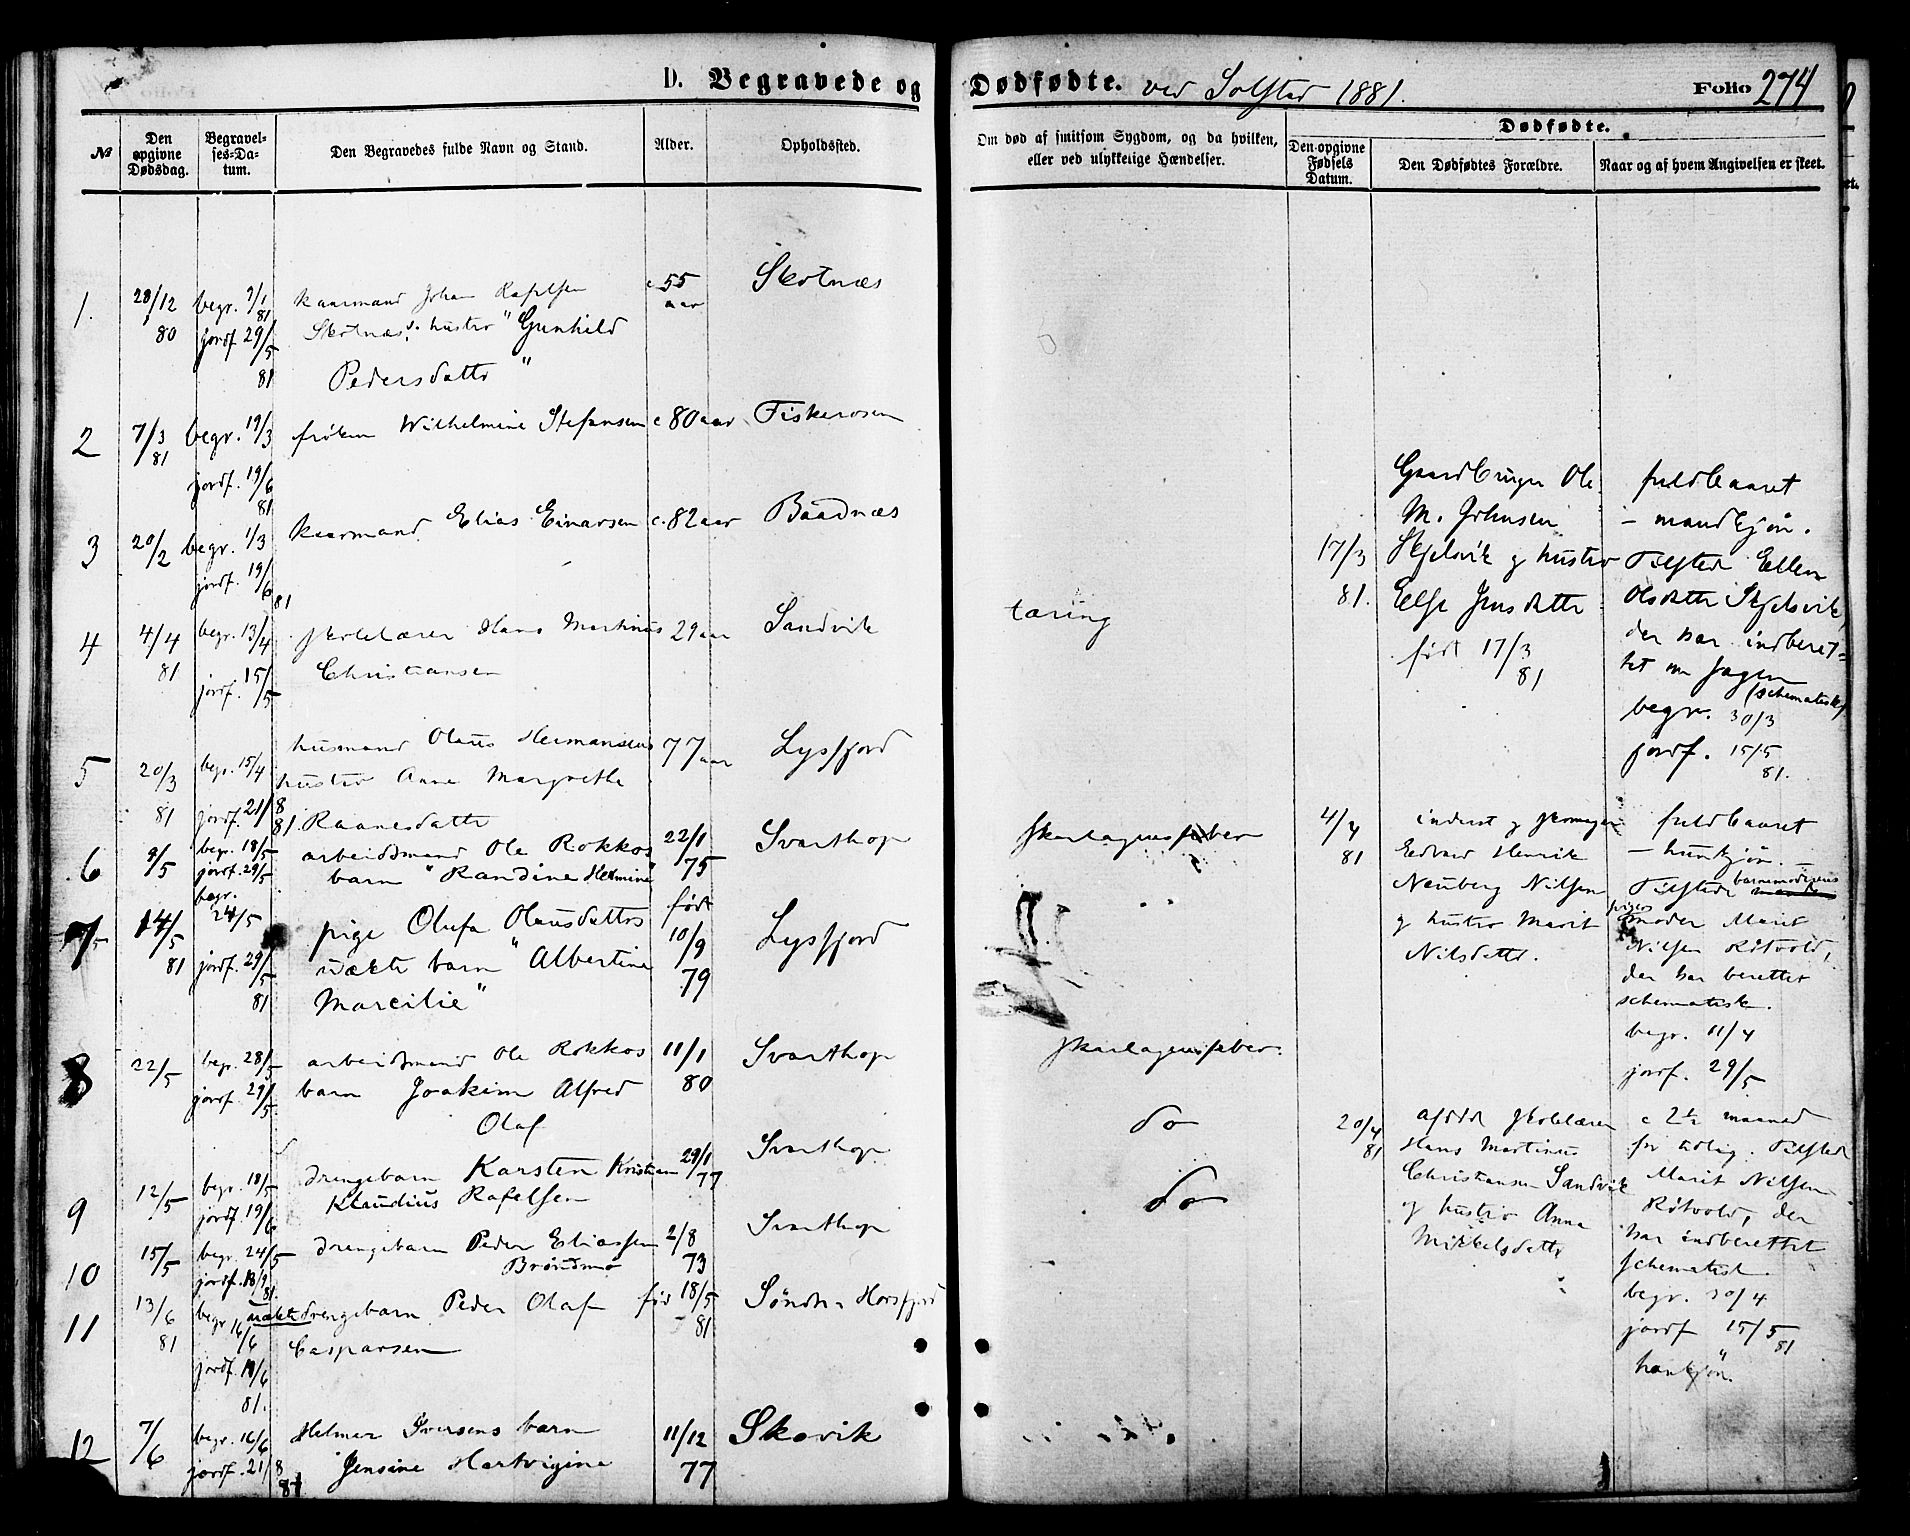 D. Begravede og Dødfødte. ved Solstad 1881. Folio 274
№
Den opgivne Dødsdag.
Begravel-
ses-Da-
tum.
Den Begravedes fulde Navn og Stand.
Alder.
Opholdssted.
Om død af smitsom Sygdom, og da hvilken,
eller ved ulykkelige Hændelser.
Dødfødte.
Den opgivne
Fødsels
Datum.
Den Dødfødtes Forældre.
Naar og af hvem Angivelsen er skeet.
1. 28/12 80 begr. 7/1 81 jordf 29/5 81
kaarmand Johan Rafelsen
Skotnæs. hustro "Gunhild
Pedersdatt "
c 55 aar
Skotnæs
2 7/3 81 begr. 19/3 jordf. 19/6 81
frøken Wilhelmine Stefansen c 80 aar Fiskerosen
3 20/2 begr. 1/3 jordf. 19/6 81
kaarmand Elias Einarsen c. 82 aar Baadnæs
4 4/4 81 begr. 13/4 jordf. 15/5
skolelærer Hans Martinus 29 aar Sandvik
Christiansen
tæring
5 20/3 81 begr. 15/4 jordf. 21/8 81
husmand Olaus Hermansens 77 aar Lysfjord
hustro Anne Margrethe
Raanesdatt
6 9/5 begr. 18/5 jordf. 29/5
arbeidsmand Ole Rokkos 22/1 75 Svarthop
barn "Randine Helmine"
skarlagensfeber
7 14/5 81 begr. 24/5 jordf. 29/5 81
pige Olufa Olausdatters født 10/9 79 Lysfjord
uækte barn "Albertine
Marcilie"
8 22/5 begr. 28/5 jordf. 29/5
arbeidsmand Ole Rokkos 11/1 80 Svarthop
barn Joakim Alfred
Olaf
skarlagensfeber.
9 12/5 begr. 18/5 jordf. 19/6
drengebarn Karsten Kristian 29/1 77 Svarthop
Klaudius Rafelsen
do
10 15/5 begr. 24/5 jordf. 18/9 81
drengebarn Peder Eliassen 2/8 73 Svarthop
Brøndmo
do
11 13/6 81 begr 16/6 jordf. 19/6 81.
uækte drengebarn Peder Olaf fød 18/5 81 Søndre Horsfjord
Casparsen
12 7/6 begr. 16/6 jordf. 21/8 81
Helmer Iversens barn 11/12 77 Skovik
Jensine Hartvigine
17/3 81.
Gaardbruger Ole
M. Johnsen
Skjelsvik og hustro
Else Jensdatte
født 17/3 81
fuldbaaret
– mandkjøn.
Tilsted Ellen
Olsdatter Skjelsvik,
der har indberet-
tet om sagen
(schematisk)
begr. 30/3
jordf. 15/5 81.
4/4 81
inderst og skomager
Edvard Henrik
Neuberg Nilsen
og hustro Marit
Nilsdatt.
fuldbaaret
– hunkjøn. –
Tilstede barnemoderens
moder Marit
Nilsen Røtvold,
der har berettet
schematisk.
begr. 11/4
jordf. 29/5
20/4 81
afdød skolelærer
Hans Martinus
Christiansen Sandvik
og hustro Anna
Mikkelsdatte
c 2½ maaned
for tidlig. Tilsted
Marit Nilsen
Røtvold, der
har indberettet
schematisk.
begr. 30/4
jordf 15/5 81
hankjøn.